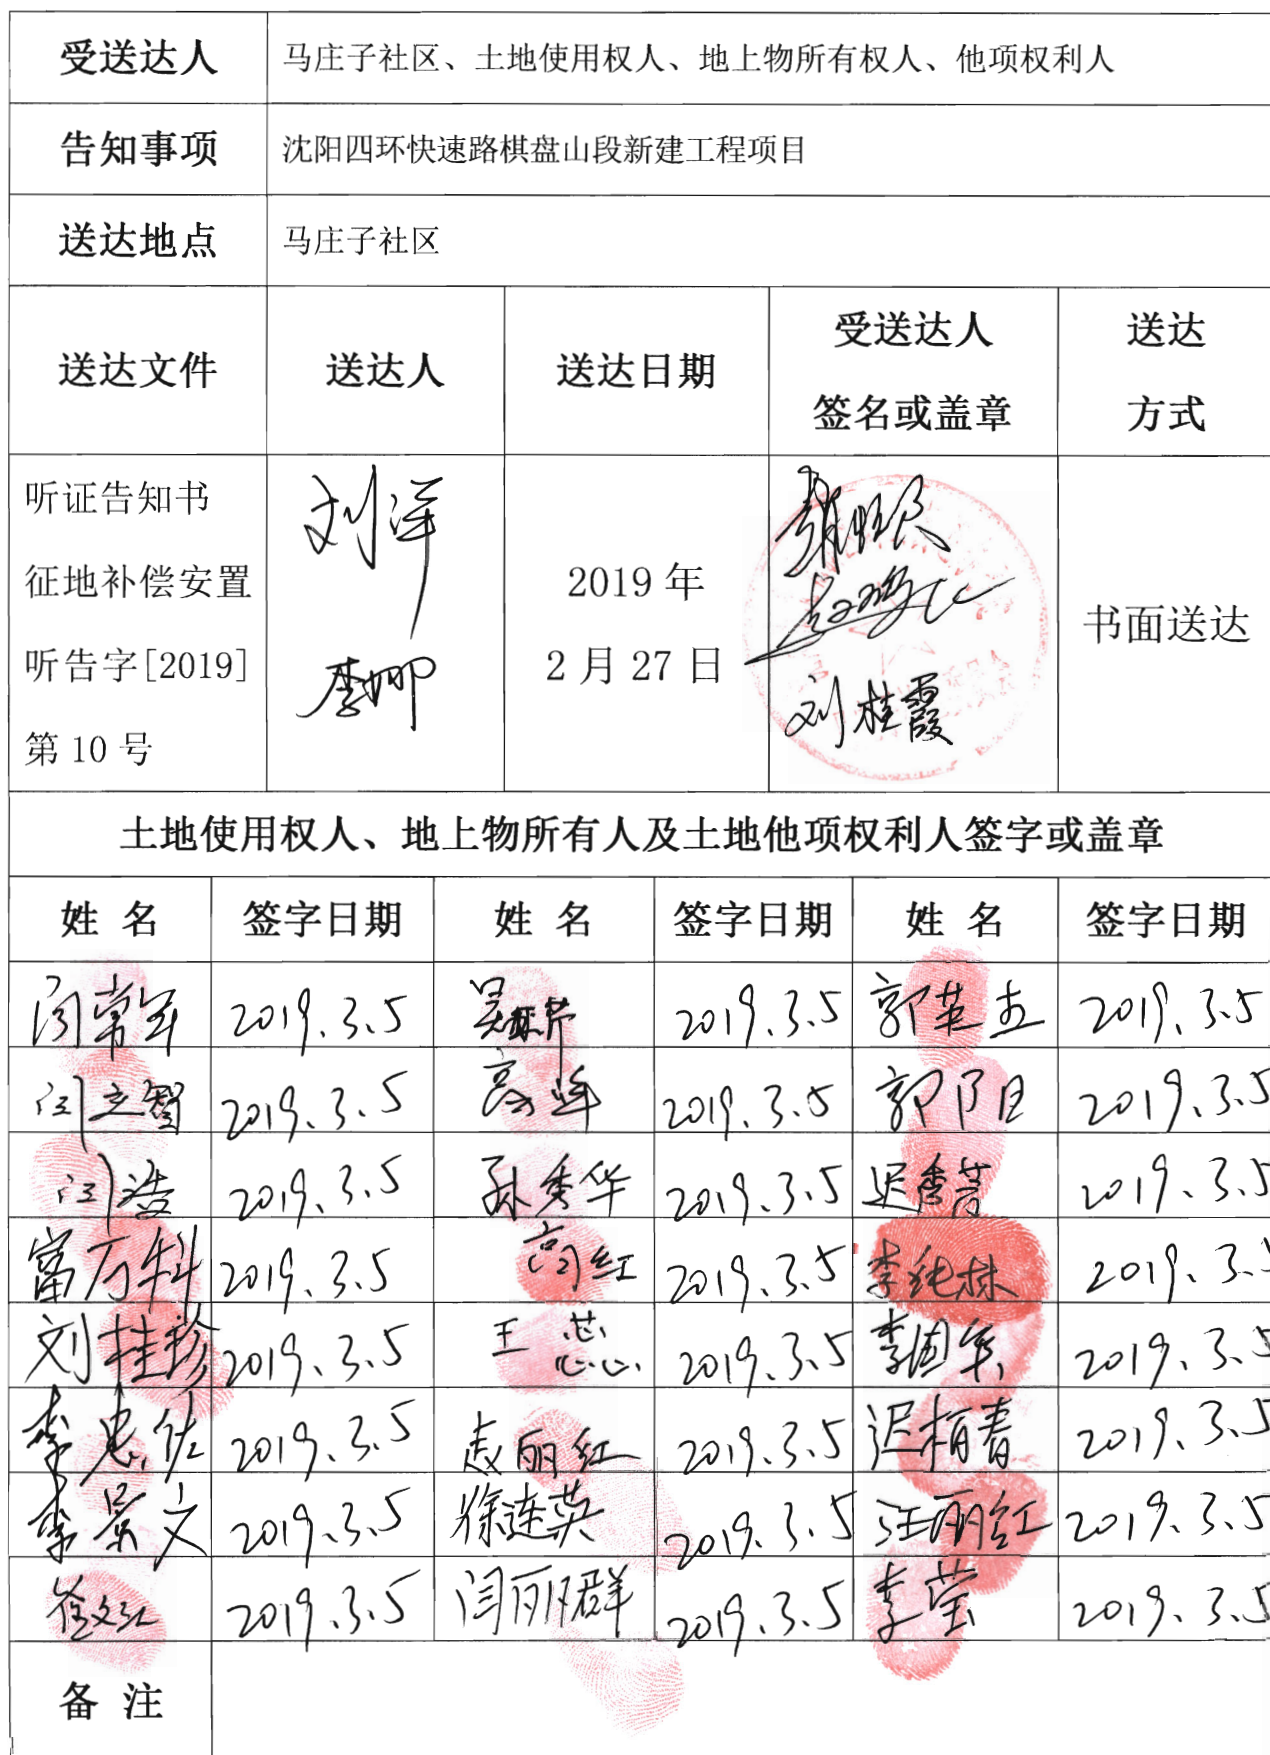 受送达人 马庄子社区、土地使用权人、地上物所有权人、他项权利人
告知事项 沈阳四环快速路棋盘山段新建工程项目
送达地点 马庄子社区
送达文件 送达人 送达日期 受送达人 签名或盖章 送达 方式
听证告知书
征地补偿安置
听告字[2019]
第 10 号
刘洋
李娜
2019 年
2 月 27 日
刘桂霞
书面送达
土地使用权人、地上物所有人及土地他项权利人签字或盖章
姓 名 签字日期 姓 名 签字日期 姓 名 签字日期
闫常军 2019.3.5 吴 2019.3.5 郭英杰 2019.3.5
闫立智 2019.3.5 高峰 2019.3.5 郭阳 2019.3.5
闫浩 2019.3.5 孙秀华 2019.3.5 迟秀菁 2019.3.5
富万科 2019.3.5 高红 2019.3.5 李纯林 2019.3.5
刘桂珍 2019.3.5 王蕊 2019.3.5 李国军 2019.3.5
李忠佐 2019.3.5 赵丽红 2019.3.5 迟柏青 2019.3.5
李景文 2019.3.5 徐连英 2019.3.5 汪丽红 2019.3.5
崔文红 2019.3.5 闫丽群 2019.3.5 李莹 2019.3.5
备 注